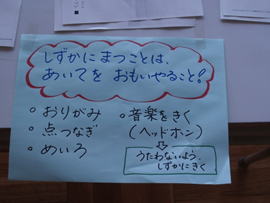 しずかにまつことは、
あいてを おもいやること!
• おりがみ
• 点つなぎ
• めいろ
• 音楽をきく
(ヘッドホン)
⇩
うたわないよう、
しずかにきく